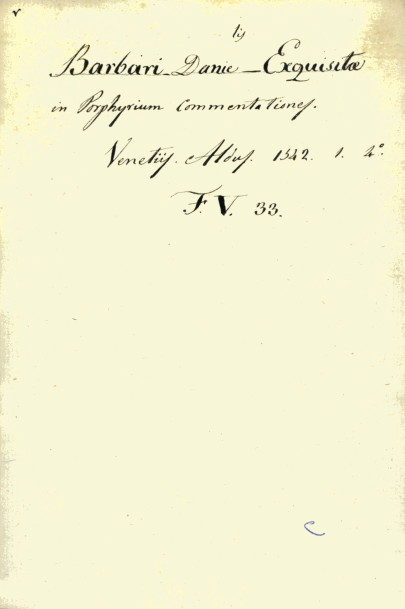 lis
Barbari Danie - Exquisitæ
in Porphyrium commentationes.
Venetijs. Aldus. 1542. 1. 4°
F. V. 33.